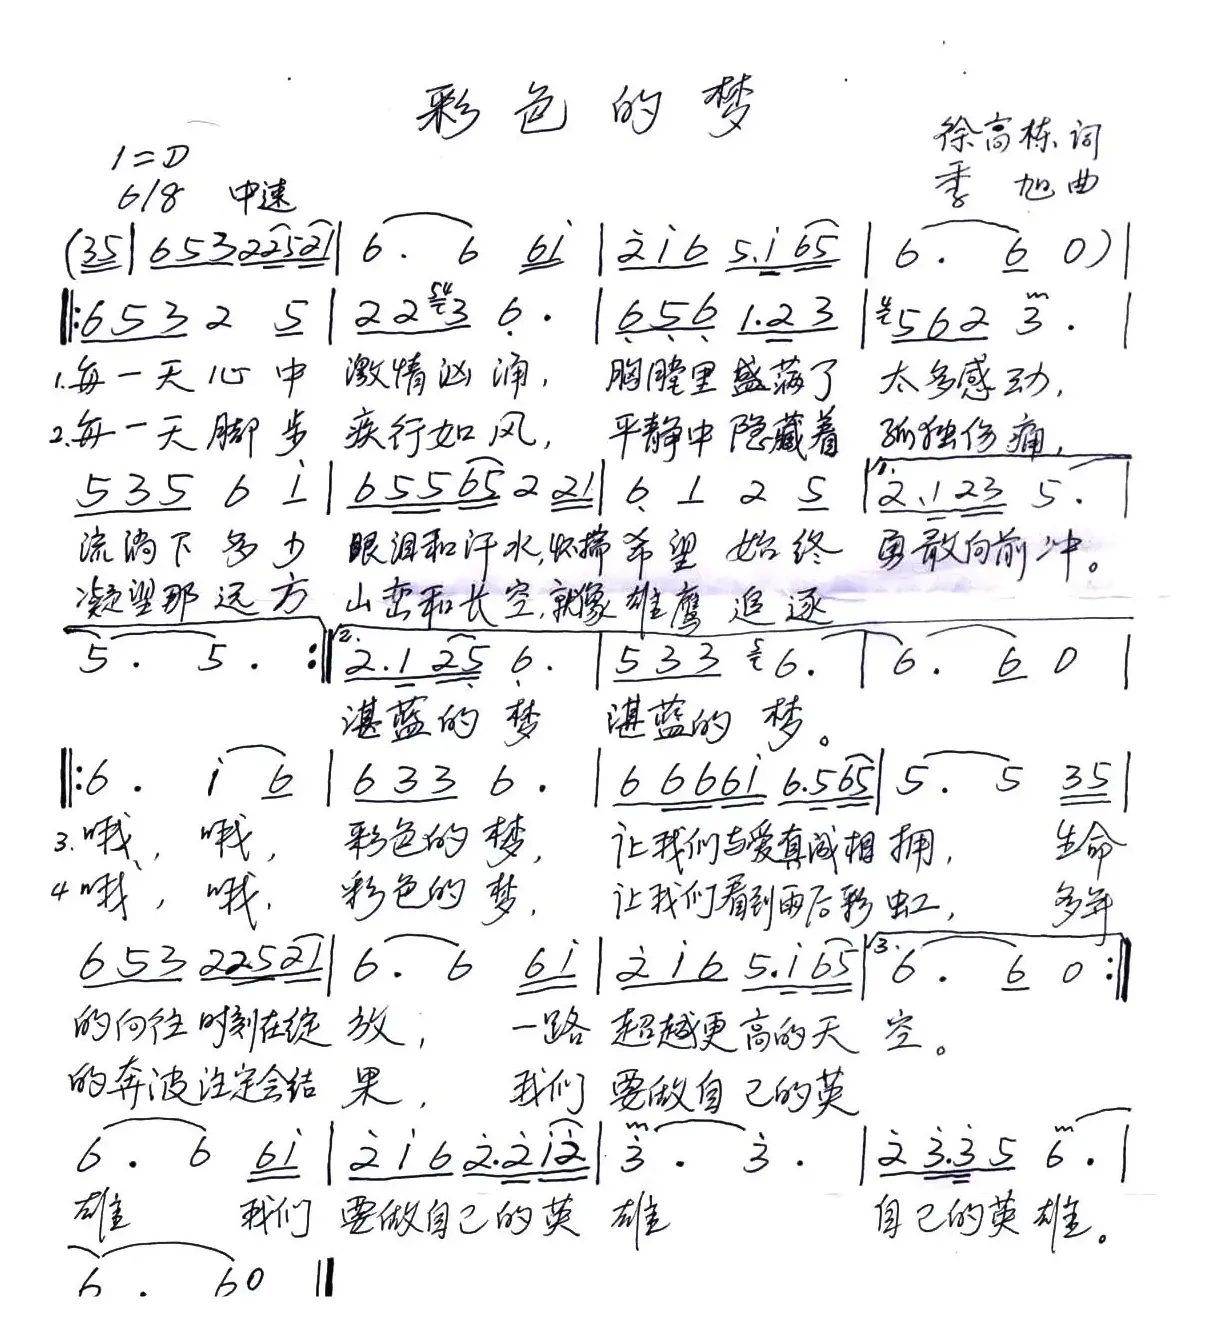 彩色的梦
1=D
6/8 中速
徐高栋 词
季 旭 曲
(35|65322521|6. 6 6i|2̇i6 5.i65|6. 6 0)|
‖:6532 5|2236.|656 1.23|5623.|
1.每一天心中 激情汹涌, 胸膛里盛满了 太多感动,
2.每一天脚步 疾行如风, 平静中隐藏着 孤独伤痛,
535 6 i|655652 21|6 1 2 5|1.2.123 5.|
流淌下多少 眼泪和汗水,怀揣希望 始终 勇敢向前冲。
凝望那远方 山峦和长空,就像雄鹰 追逐
5. 5. :‖2.2.125 6.|533 6.|6. 6 0|
湛蓝的梦 湛蓝的 梦。
‖:6. i 6|633 6.|6 666i 6.565|5. 5 35|
3.哦, 哦, 彩色的梦, 让我们与爱真诚相拥, 生命
4哦, 哦, 彩色的梦, 让我们看到雨后彩虹, 多年
653 22.521|6. 6 6i|2̇i6 5.i65|3.6. 6 0:‖
的向往时刻在绽 放, 一路 超越更高的天 空。
的奔波注定会结 果, 我们 要做自己的英
6. 6 6i|2̇i6 2̇.2̇i2̇|3̇. 3̇.|2̇ 3̇.3̇5 6.|
雄 我们 要做自己的英 雄 自己的英雄。
6. 60‖